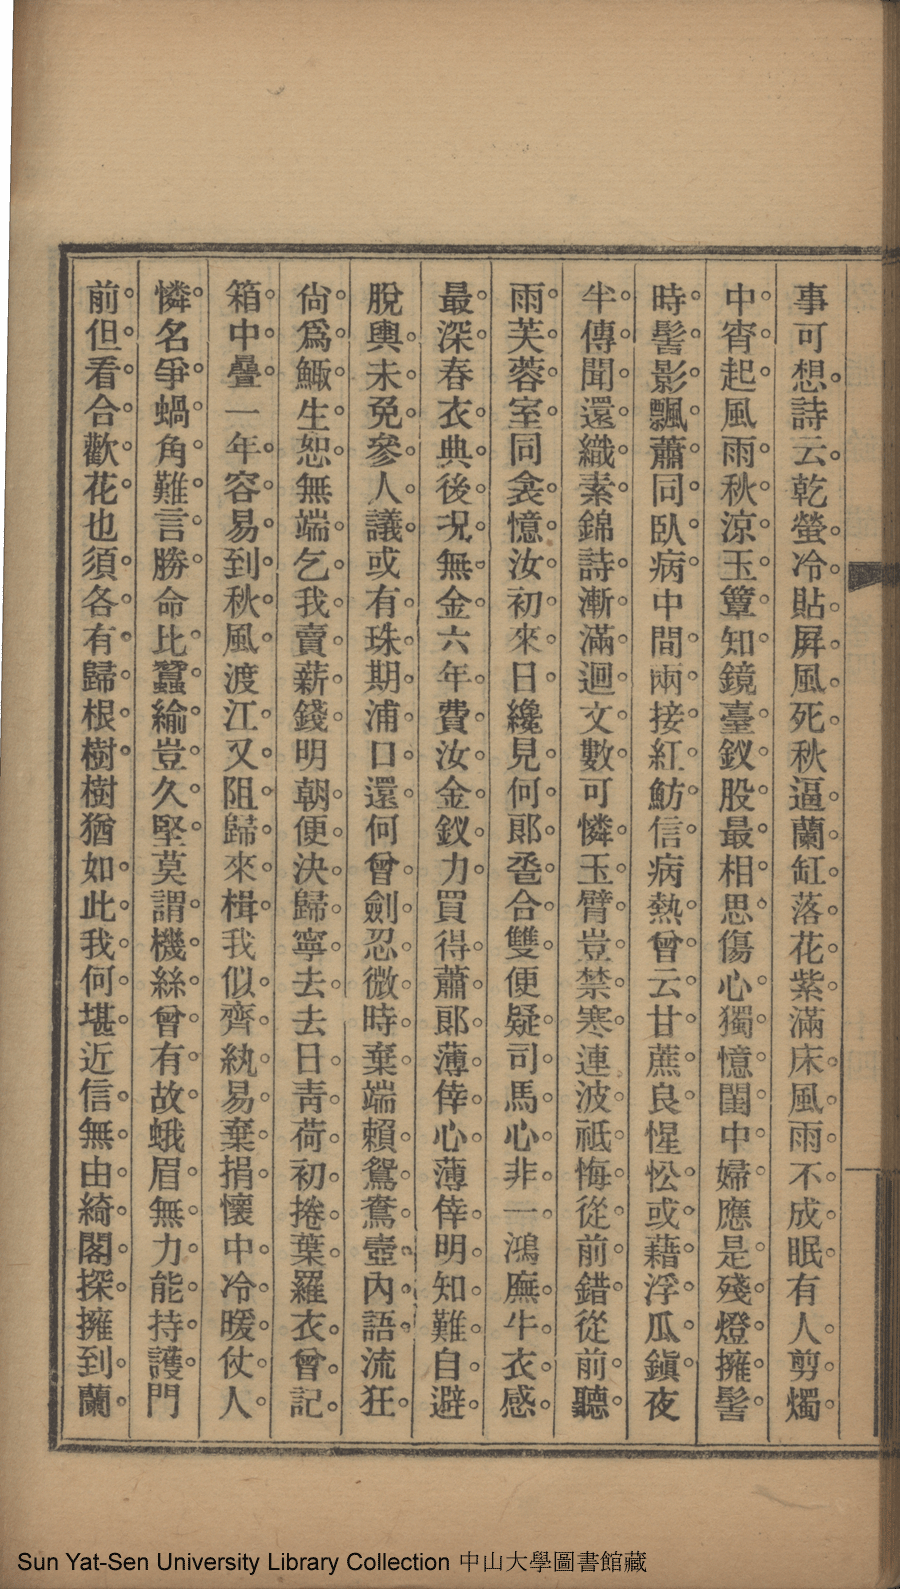 事可想詩云乾螢冷貼屏風死秋逼蘭缸落花紫滿床風雨不成眠有人剪燭
中宵起風雨秋涼玉簟知鏡臺釵股最相思傷心獨憶閨中婦應是殘燈擁髻
時髻影飄蕭同臥病中間兩接紅魴信病熱曾云甘蔗良惺忪或藉浮瓜鎮夜
半傳聞還織素錦詩漸滿迴文數可憐玉臂豈禁寒連波祗悔從前錯從前聽
雨芙蓉室同衾憶汝初來日纔見何郎卺合雙便疑司馬心非一鴻廡牛衣感
最深春衣典後况無金六年費汝金釵力買得蕭郎薄倖心薄倖明知難自避
脫輿未免參人議或有珠期浦口還何曾劍忍微時棄端賴鴛鴦壼內語流狂
尙爲鯫生恕無端乞我賣薪錢明朝便決歸寧去去日靑荷初捲葉羅衣曾記
箱中疊一年容易到秋風渡江又阻歸來楫我似齊紈易棄捐懷中冷暖仗人
憐名爭蝸角難言勝命比蠶綸豈久堅莫謂機絲曾有故蛾眉無力能持護門
前但看合歡花也須各有歸根樹樹猶如此我何堪近信無由綺閣探擁到蘭
Sun Yat-Sen University Library Collection 中山大學圖書館藏